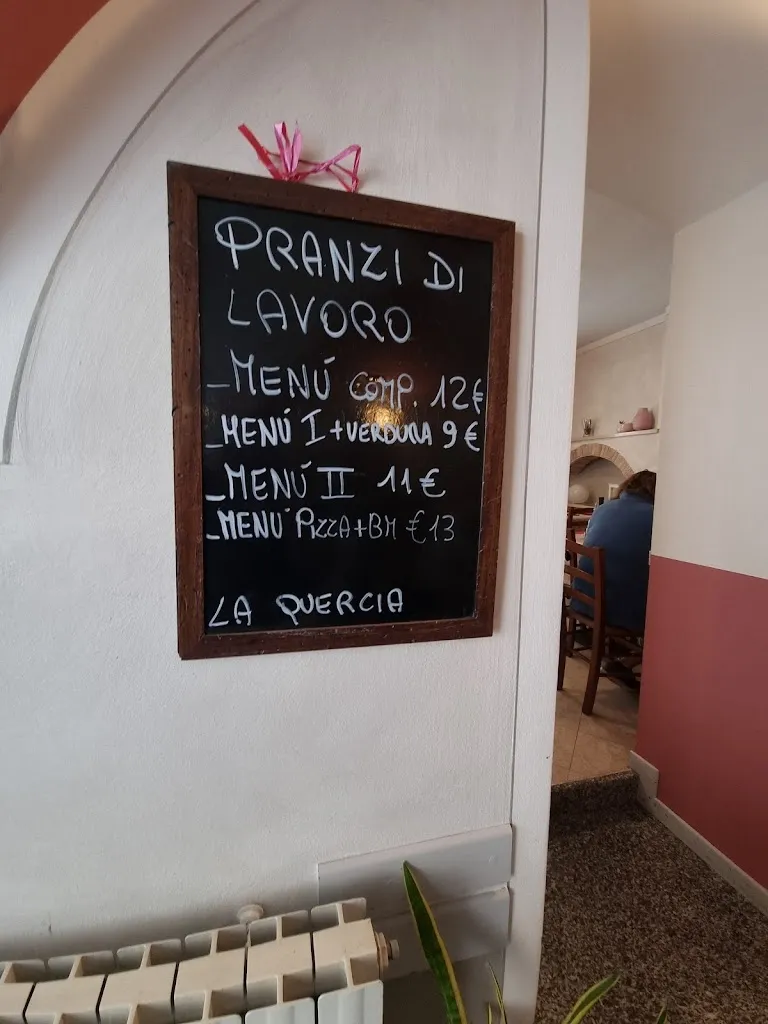 PRANZI DI
LAVORO
-MENÚ COMP. 12€
-MENÚ I + VERDURA 9 €
-MENÚ II 11€
-MENÚ PIZZA+BM €13
LA QUERCIA